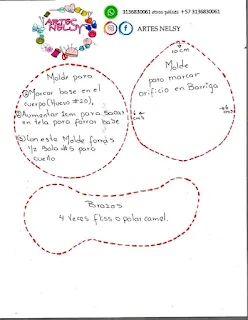 ARTEC NELSY
3136830061 otros países +57 3136830061
ARTES NELSY
Molde para
① Marcar base en el
cuerpo (Huevo #20),
② Aumentar 1cm para sacar
en tela para forrar base
③ Con este Molde forras
1/2 Bola #5 para
cueño
10 cm
Molde
para marcar
orificio en Barriga
Brazos
4 veces fliss o polar camel.